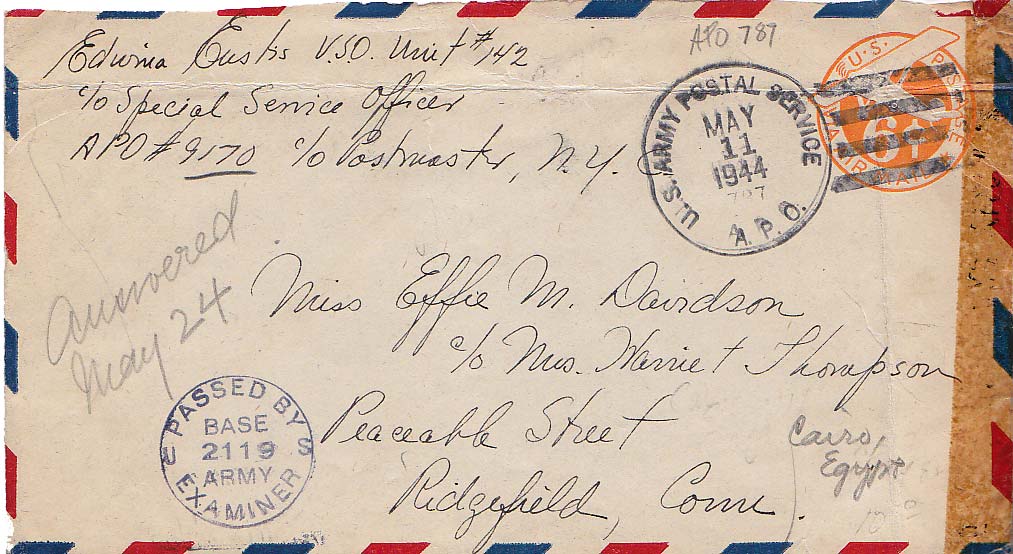 Edwina Eustis V.S.O. Unit #142
c/o Special Service Officer
APO #9170 c/o Postmaster, N.Y.C.
APO 787
U.S. ARMY POSTAL SERVICE
MAY
11
1944
787
A.P.O.
U.S. POSTAGE
6¢
VIA AIR MAIL
Answered
May 24
Miss Effie M. Davidson
c/o Mrs. Harriet Thompson
Peaceable Street
Ridgefield, Conn.
Cairo,
Egypt
PASSED BY
BASE
2119
ARMY
EXAMINER
U S